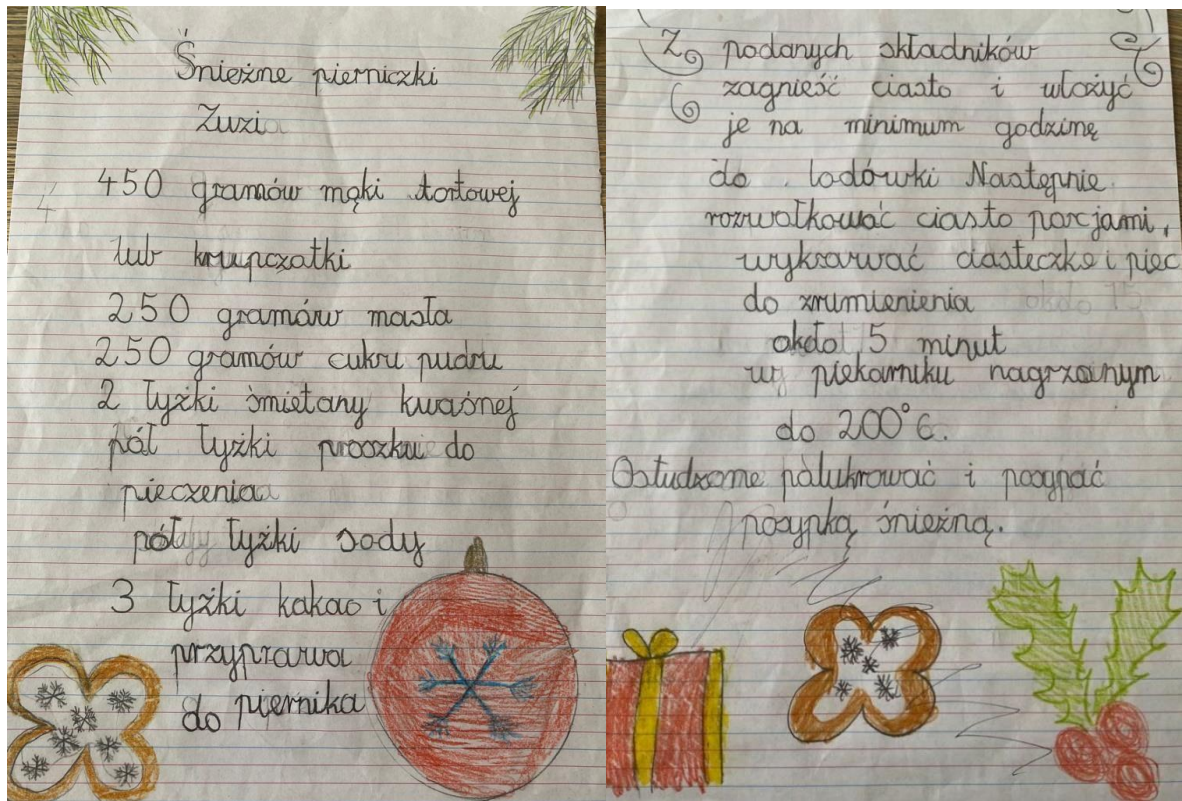 Śnieżne pierniczki
Zuzi
450 gramów mąki tortowej
lub krupczatki
250 gramów masła
250 gramów cukru pudru
2 łyżki śmietany kwaśnej
pół łyżki proszku do
pieczenia
pół łyżki sody
3 łyżki kakao i
przyprawa
do piernika
Z podanych składników
zagnieść ciasto i włożyć
je na minimum godzinę
do lodówki Następnie
rozwałkować ciasto porcjami,
wykrawać ciasteczka i piec
do zrumienienia
około 5 minut
w piekarniku nagrzanym
do 200°C.
Ostudzone polukrować i posypać
posypką śnieżną.